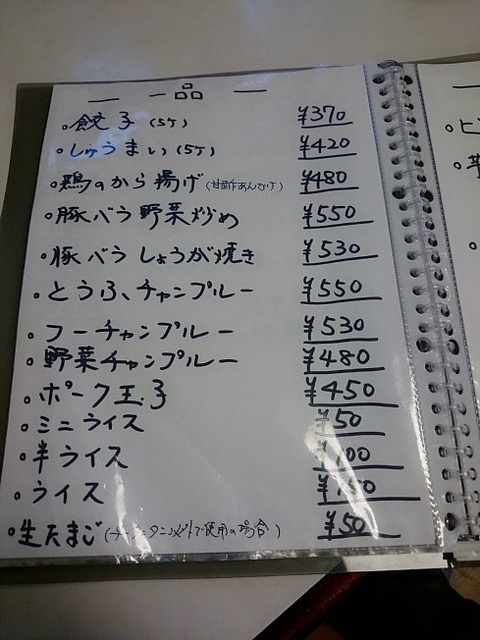 一品
・餃子(5ケ) ¥370
・しゅうまい(5ケ) ¥420
・鶏のから揚げ(甘酢あんかけ) ¥480
・豚バラ野菜炒め ¥550
・豚バラしょうが焼き ¥530
・とうふチャンプルー ¥550
・フーチャンプルー ¥530
・野菜チャンプルー ¥480
・ポーク玉子 ¥450
・ミニライス ¥50
・半ライス ¥100
・ライス ¥150
・生たまご(以外で使用の場合) ¥50